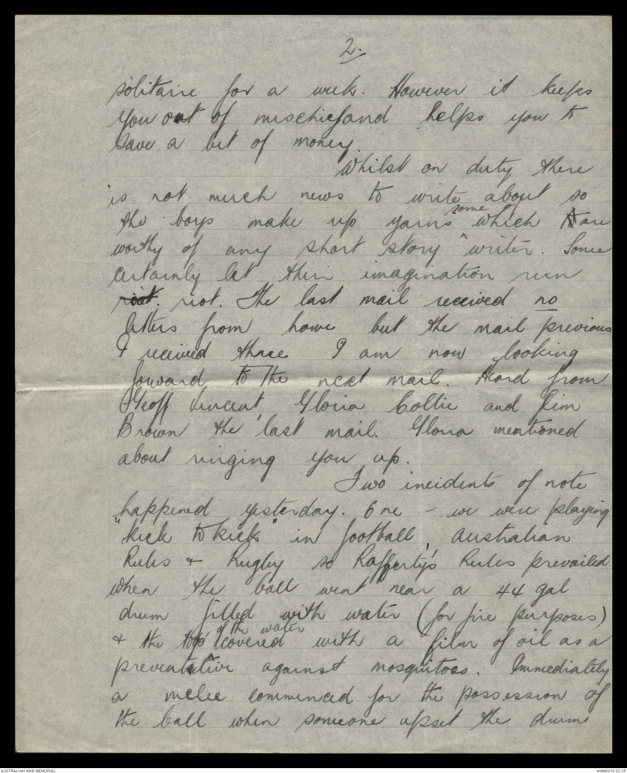 2.
solitaire for a week. However it keeps
you out of mischief and helps you to
save a bit of money.
Whilst on duty there
is not much news to write about so
the boys make up yarns some of which are
worthy of any short story writer. Some
certainly let their imagination run
riot. The last mail received no
letters from home but the mail previous
I received three I am now looking
forward to the next mail. Heard from
Geoff Vincent, Gloria Collie and Jim
Brown the last mail. Gloria mentioned
about ringing you up.
Two incidents of note
happened yesterday. One - we were playing
"kick to kick" in football, Australian
Rules & Rugby so Rafferty's Rules prevailed
when the ball went near a 44 gal
drum filled with water (for fire purposes)
& the top of the water covered with a film of oil as a
preventative against mosquitoes. Immediately
a melee commenced for the possession of
the ball when someone upset the drum
AUSTRALIAN WAR MEMORIAL